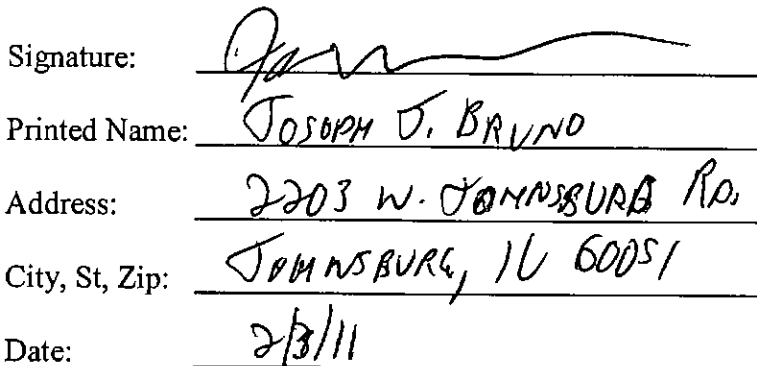 Signature:
Printed Name: JOSEPH J. BRUNO
Address: 2203 W. JOHNSBURG RD.
City, St, Zip: JOHNSBURG, IL 60051
Date: 2/3/11